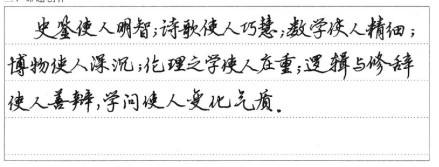 史鉴使人明智;诗歌使人巧慧;数学使人精细;
博物使人深沉;伦理之学使人庄重;逻辑与修辞
使人善辩,学问使人变化气质。